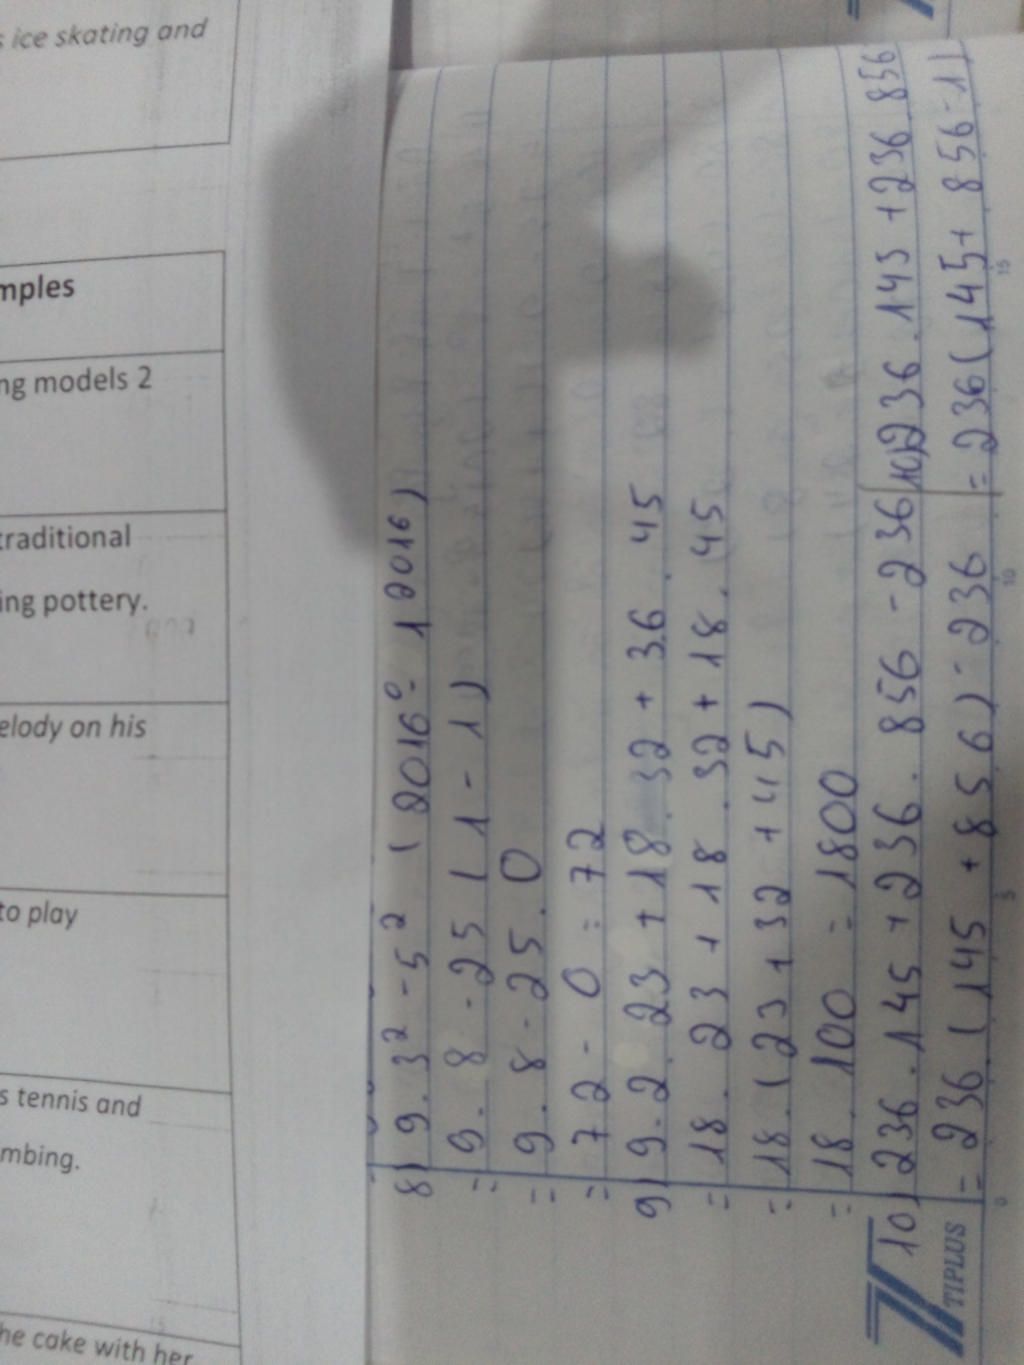 s ice skating and
mples
ng models 2
traditional
ing pottery.
elody on his
to play
s tennis and
mbing.
he cake with her
8) 9.3² - 5² (2016⁰ - 1 2016)
= 9.8 - 25 (1 - 1)
= 9.8 - 25.0
= 72 - 0 = 72
9) 9.2.23 + 18.32 + 36.45
= 18.23 + 18.32 + 18.45
= 18.(23 + 32 + 45)
= 18.100 = 1800
10) 236.145 + 236.856 - 236
= 236.(145 + 856) - 236
10) 236.145 + 236 856
= 236(145 + 856 - 1)
TIPLUS
0 5 10 15